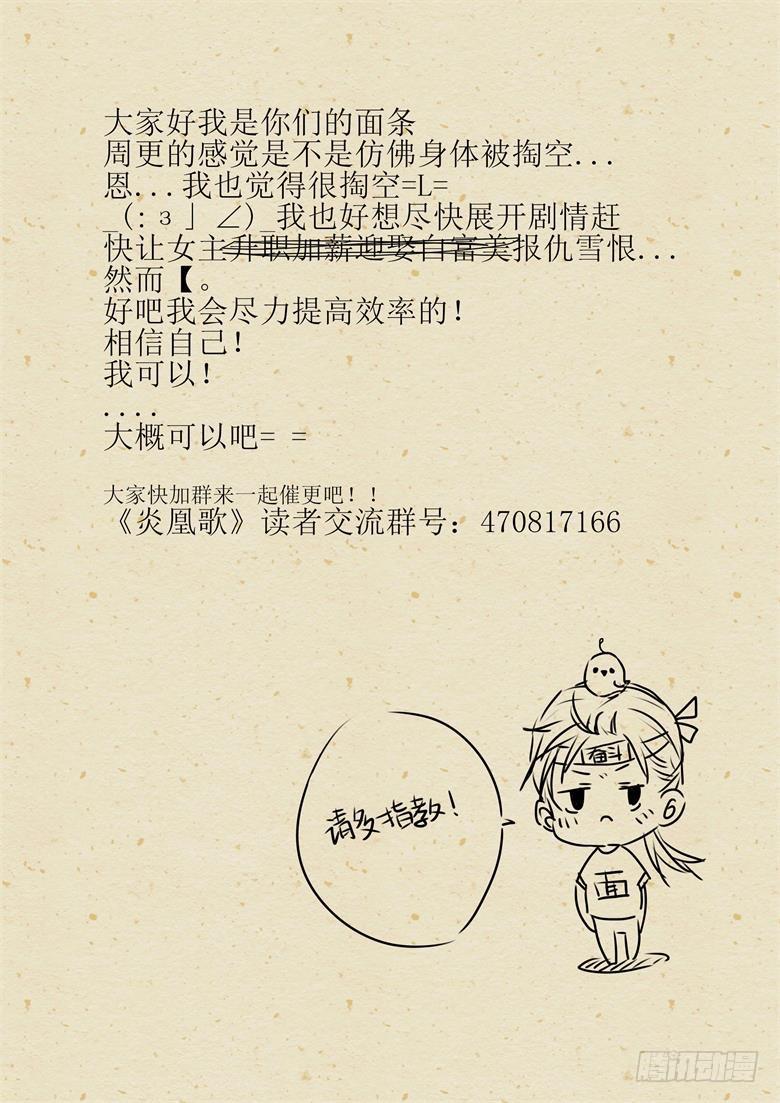 大家好我是你们的面条
周更的感觉是不是仿佛身体被掏空...
恩...我也觉得很掏空=L=
_(:з」∠)_我也好想尽快展开剧情赶
快让女主升职加薪迎娶白富美报仇雪恨...
然而【。
好吧我会尽力提高效率的！
相信自己！
我可以！
....
大概可以吧= =
大家快加群来一起催更吧！！
《炎凰歌》读者交流群号：470817166
奋斗
请多指教！
面
腾讯动漫